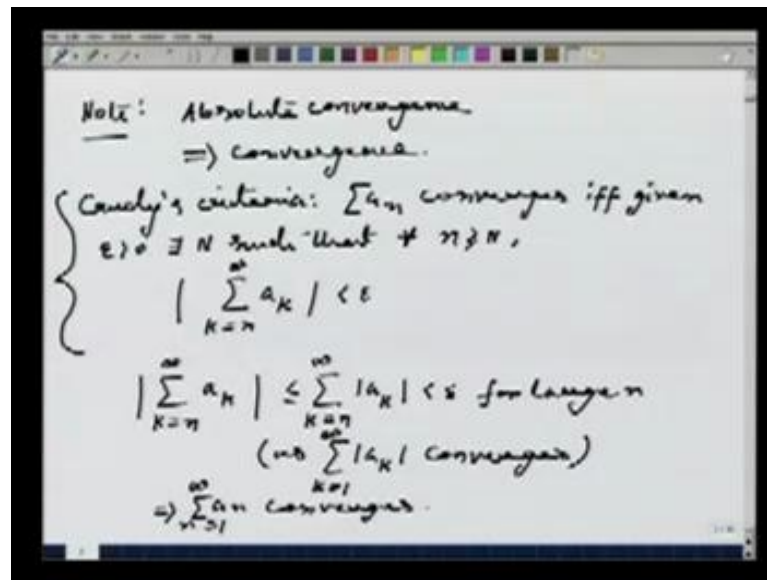 Note: Absolute convergence
=) convergence.
Cauchy's criteria: ∑a_n converges iff given
ε>0 ∃ N such that ∀ n≥N,
| ∑_{k=n}^{∞} a_k | < ε
| ∑_{k=n}^{∞} a_k | ≤ ∑_{k=n}^{∞} |a_k| < ε for large n
(as ∑_{k=1}^{∞} |a_k| converges)
=) ∑_{n=1}^{∞} a_n converges.